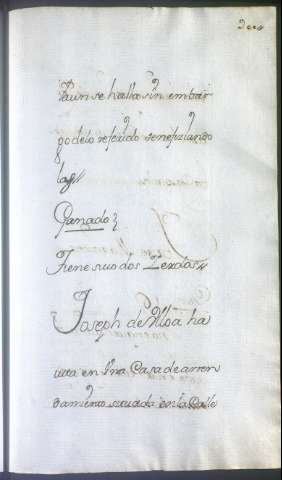 y aun se halla sin embar
go delo referido venefiziando
las
Ganado
Tiene suio dos Zerdos
Joseph de Ulloa ha
uita en Vna Casa de arren
damiento situada en la Calle